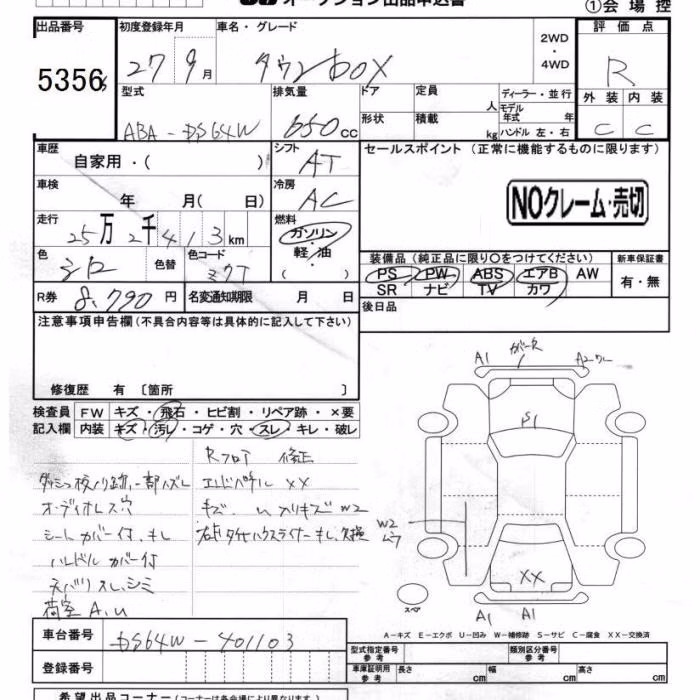 オークション出品申込書
①会場控
出品番号 初度登録年月 車名・グレード 2WD・4WD 評価点
5356 27 9月 タウンBOX R
型式 排気量 ドア 定員 人 ディーラー・並行 外装 内装
ABA-DS64W 650cc 形状 積載 kg モデル年式 年 ハンドル 左・右 C C
車歴 自家用・( ) シフト AT セールスポイント (正常に機能するものに限ります)
車検 年 月( 日) 冷房 AC
NOクレーム・売切
走行 25万2千413km 燃料 ガソリン・軽・油 ( )
装備品 (純正品に限り○をつけてください) 新車保証書
色 シロ 色替 色コード
PS PW ABS エアB AW 有・無
SR ナビ TV カワ
R券 8,790円 名変通知期限 月 日 後日品
注意事項申告欄 (不具合内容等は具体的に記入して下さい)
修復歴 有 〔箇所 〕
検査員 FW キズ・飛石・ヒビ割・リペア跡・×要
記入欄 内装 キズ・汚レ・コゲ・穴・スレ・キレ・破レ
Rフロア 修正
オーディオレス 穴
シートカバー付、キレ
ハンドルカバー付
荷室 A、U
A1 ガー欠 A2ワレ
S1
W2
XX
スペア
A1 A1
A-キズ E-エクボ U-凹み W-補修跡 S-サビ C-腐食 XX-交換済
車台番号 DS64W-401103
型式指定番号 参考 類別区分番号 参考
登録番号 車庫証明用 参考 長さ cm 幅 cm 高さ cm
希望出品コーナー (コーナーは各会場により異なります。)